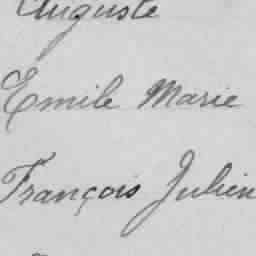 Auguste
Emile Marie
François Julien